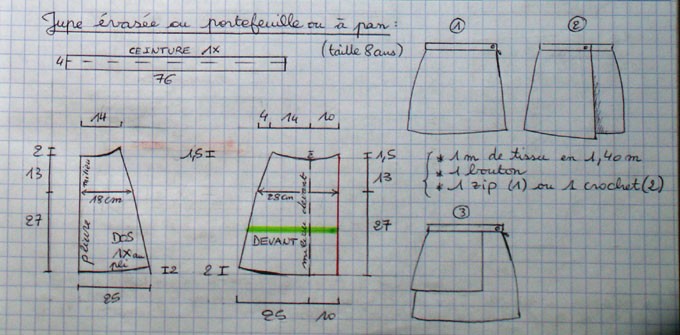 Jupe évasée ou portefeuille ou à pan :
(taille 8 ans)
CEINTURE 1X
4
76
1
2
14
2
13
27
milieu
18cm
pliure
DOS
1X au
pli
2
25
4 14 10
1,5
1,5
13
27
28cm
milieu devant
DEVANT
2
25 10
* 1 m de tissu en 1,40 m
* 1 bouton
* 1 zip (1) ou 1 crochet (2)
3